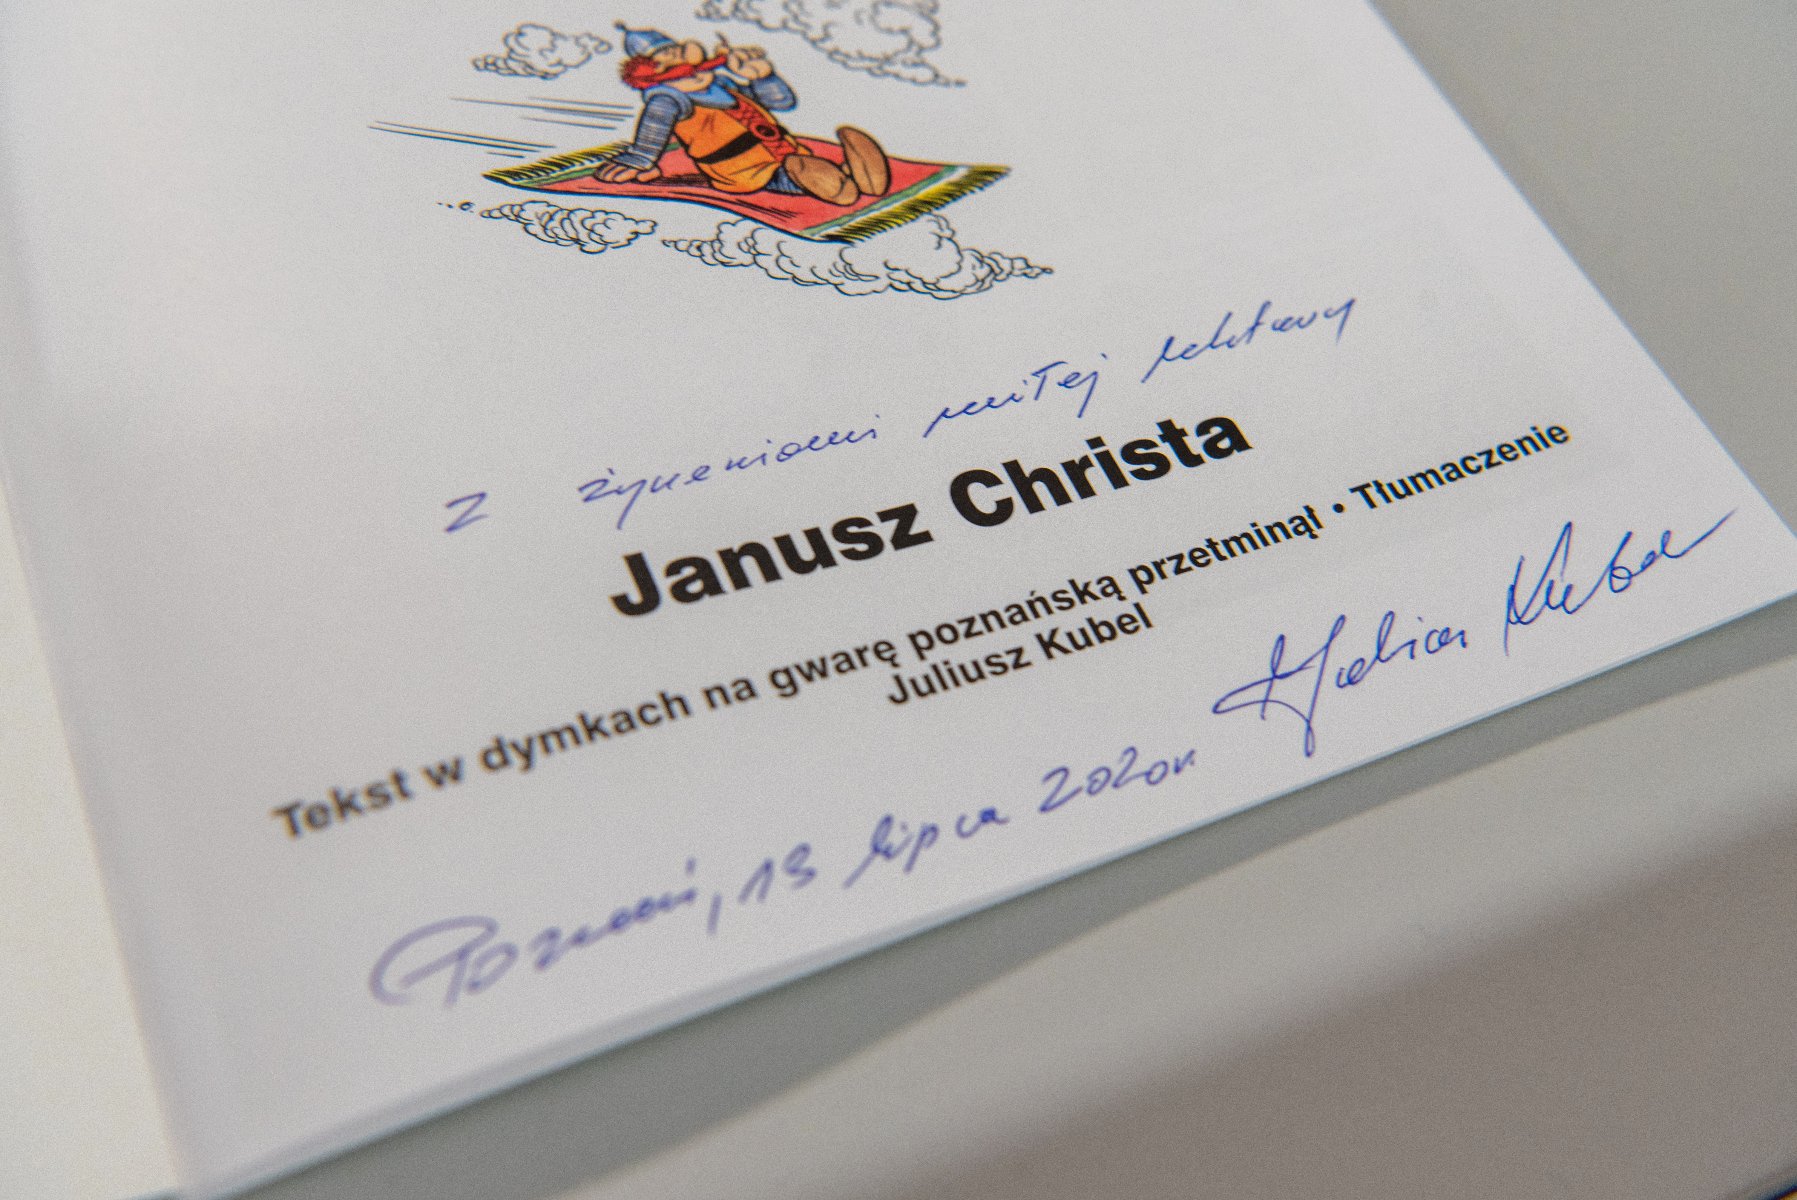 z życzeniami miłej lektury
Janusz Christa
Tekst w dymkach na gwarę poznańską przetminął • Tłumaczenie
Juliusz Kubel
Juliusz Kubel
Poznań, 13 lipca 2020r.